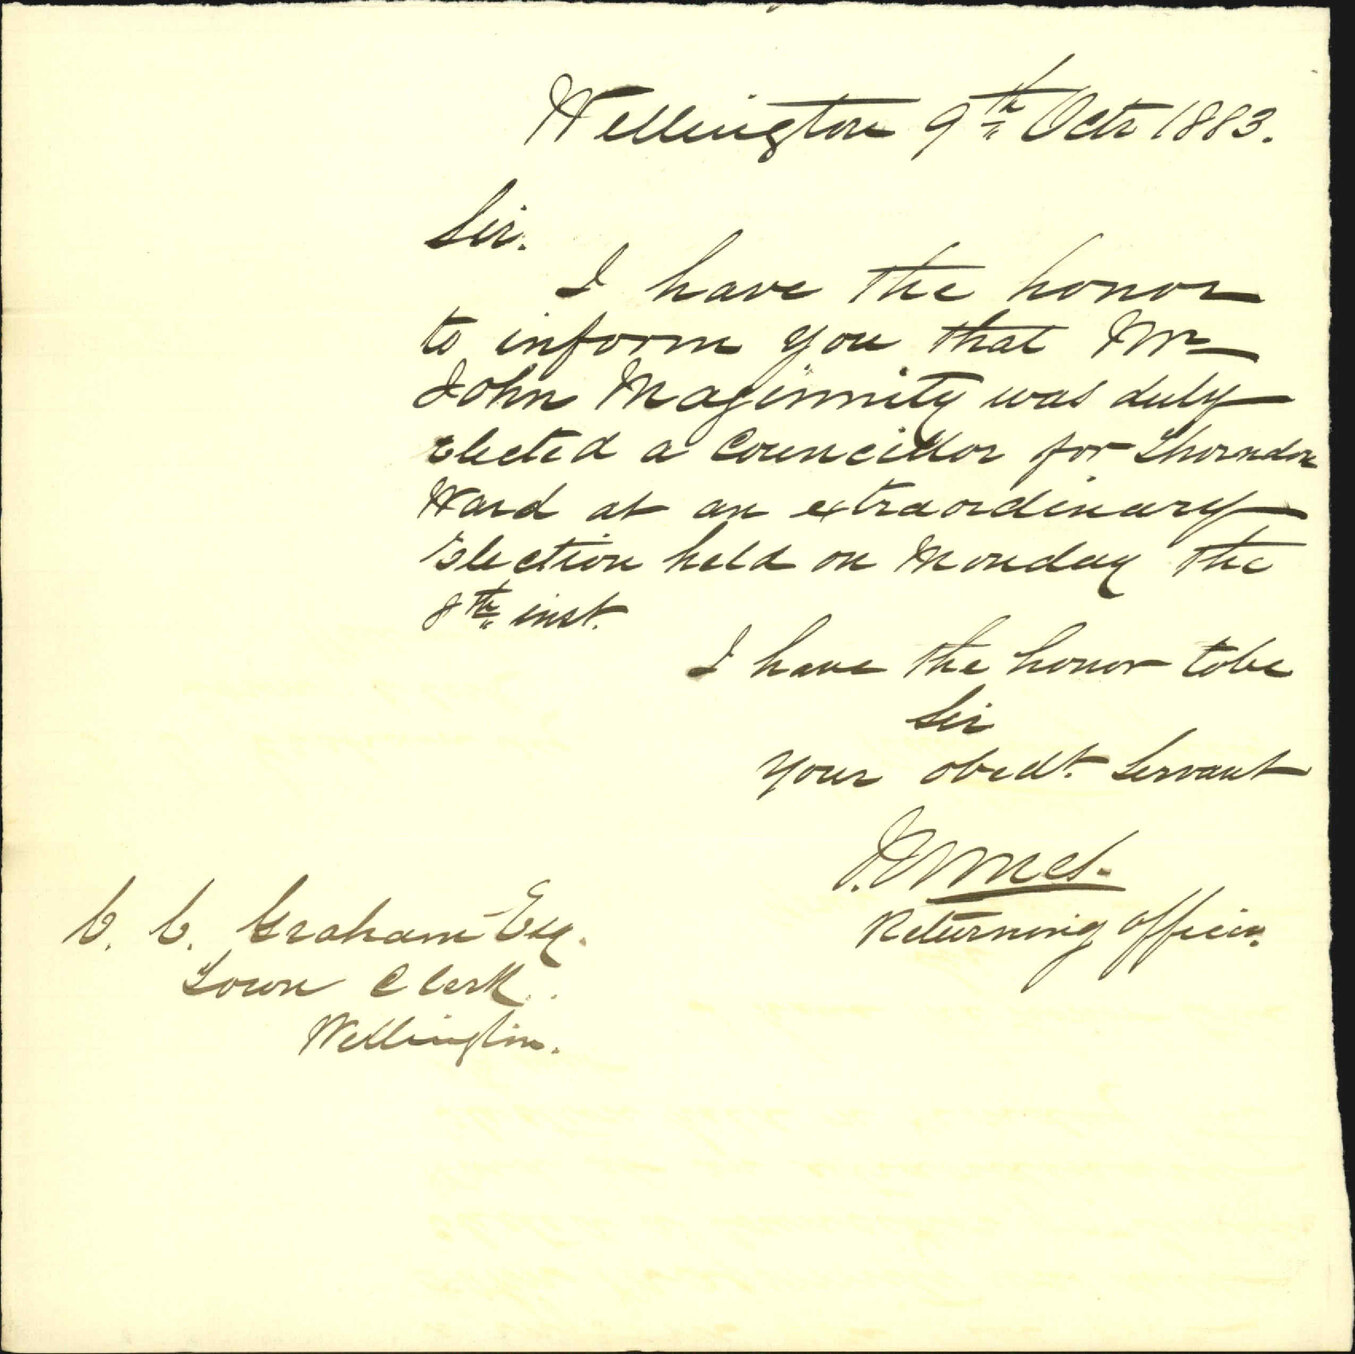 Wellington 9th Octr 1883.
Sir.
I have the honor
to inform you that Mr
John Maginnity was duly
Elected a Councillor for Thorndon
Ward at an extraordinary
Election held on Monday the
8th inst.
I have the honor to be
Sir
Your obedt. Servant
Returning Officer.
C. C. Graham Esq.
Town Clerk.
Wellington.